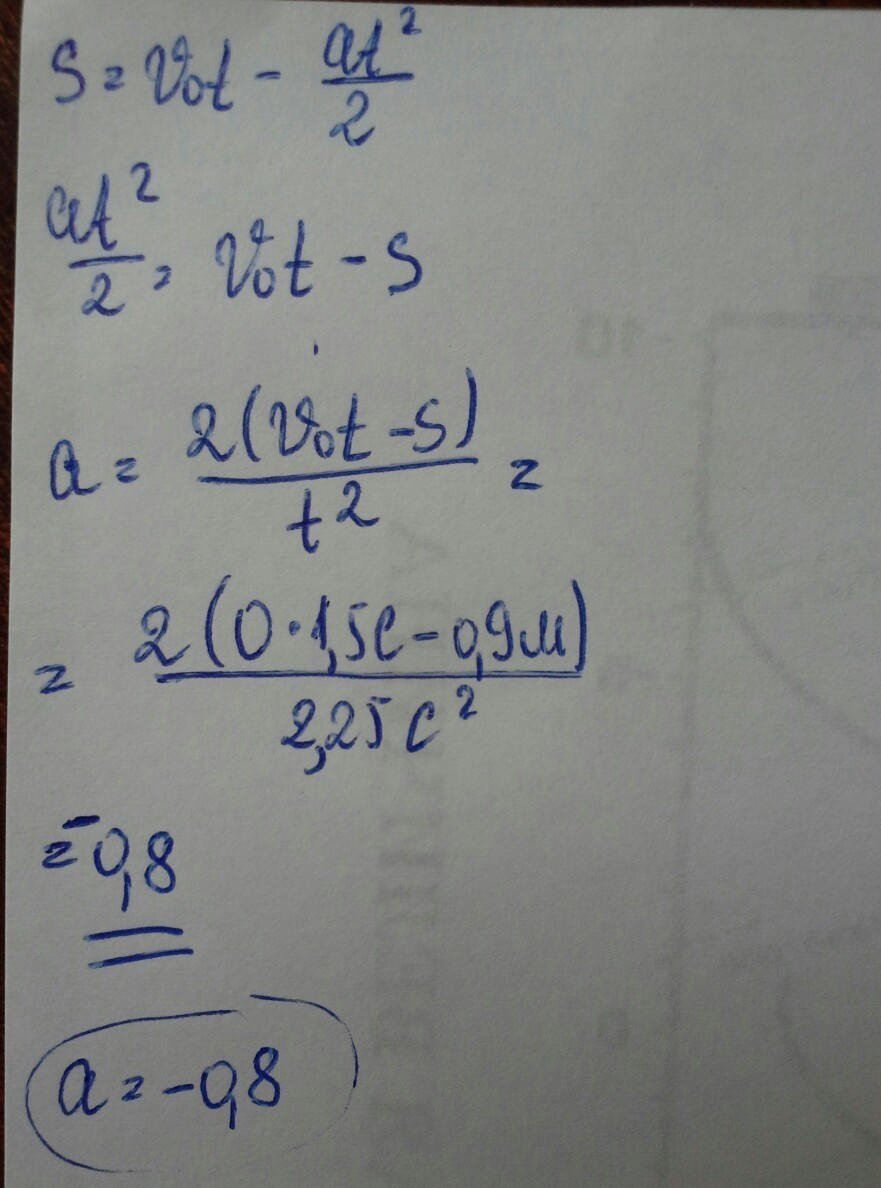 S = v₀t - at²/2
at²/2 = v₀t - S
a = 2(v₀t - S)/t² =
= 2(0·1,5с - 0,9м)/2,25с²
= -0,8
a = -0,8
-10